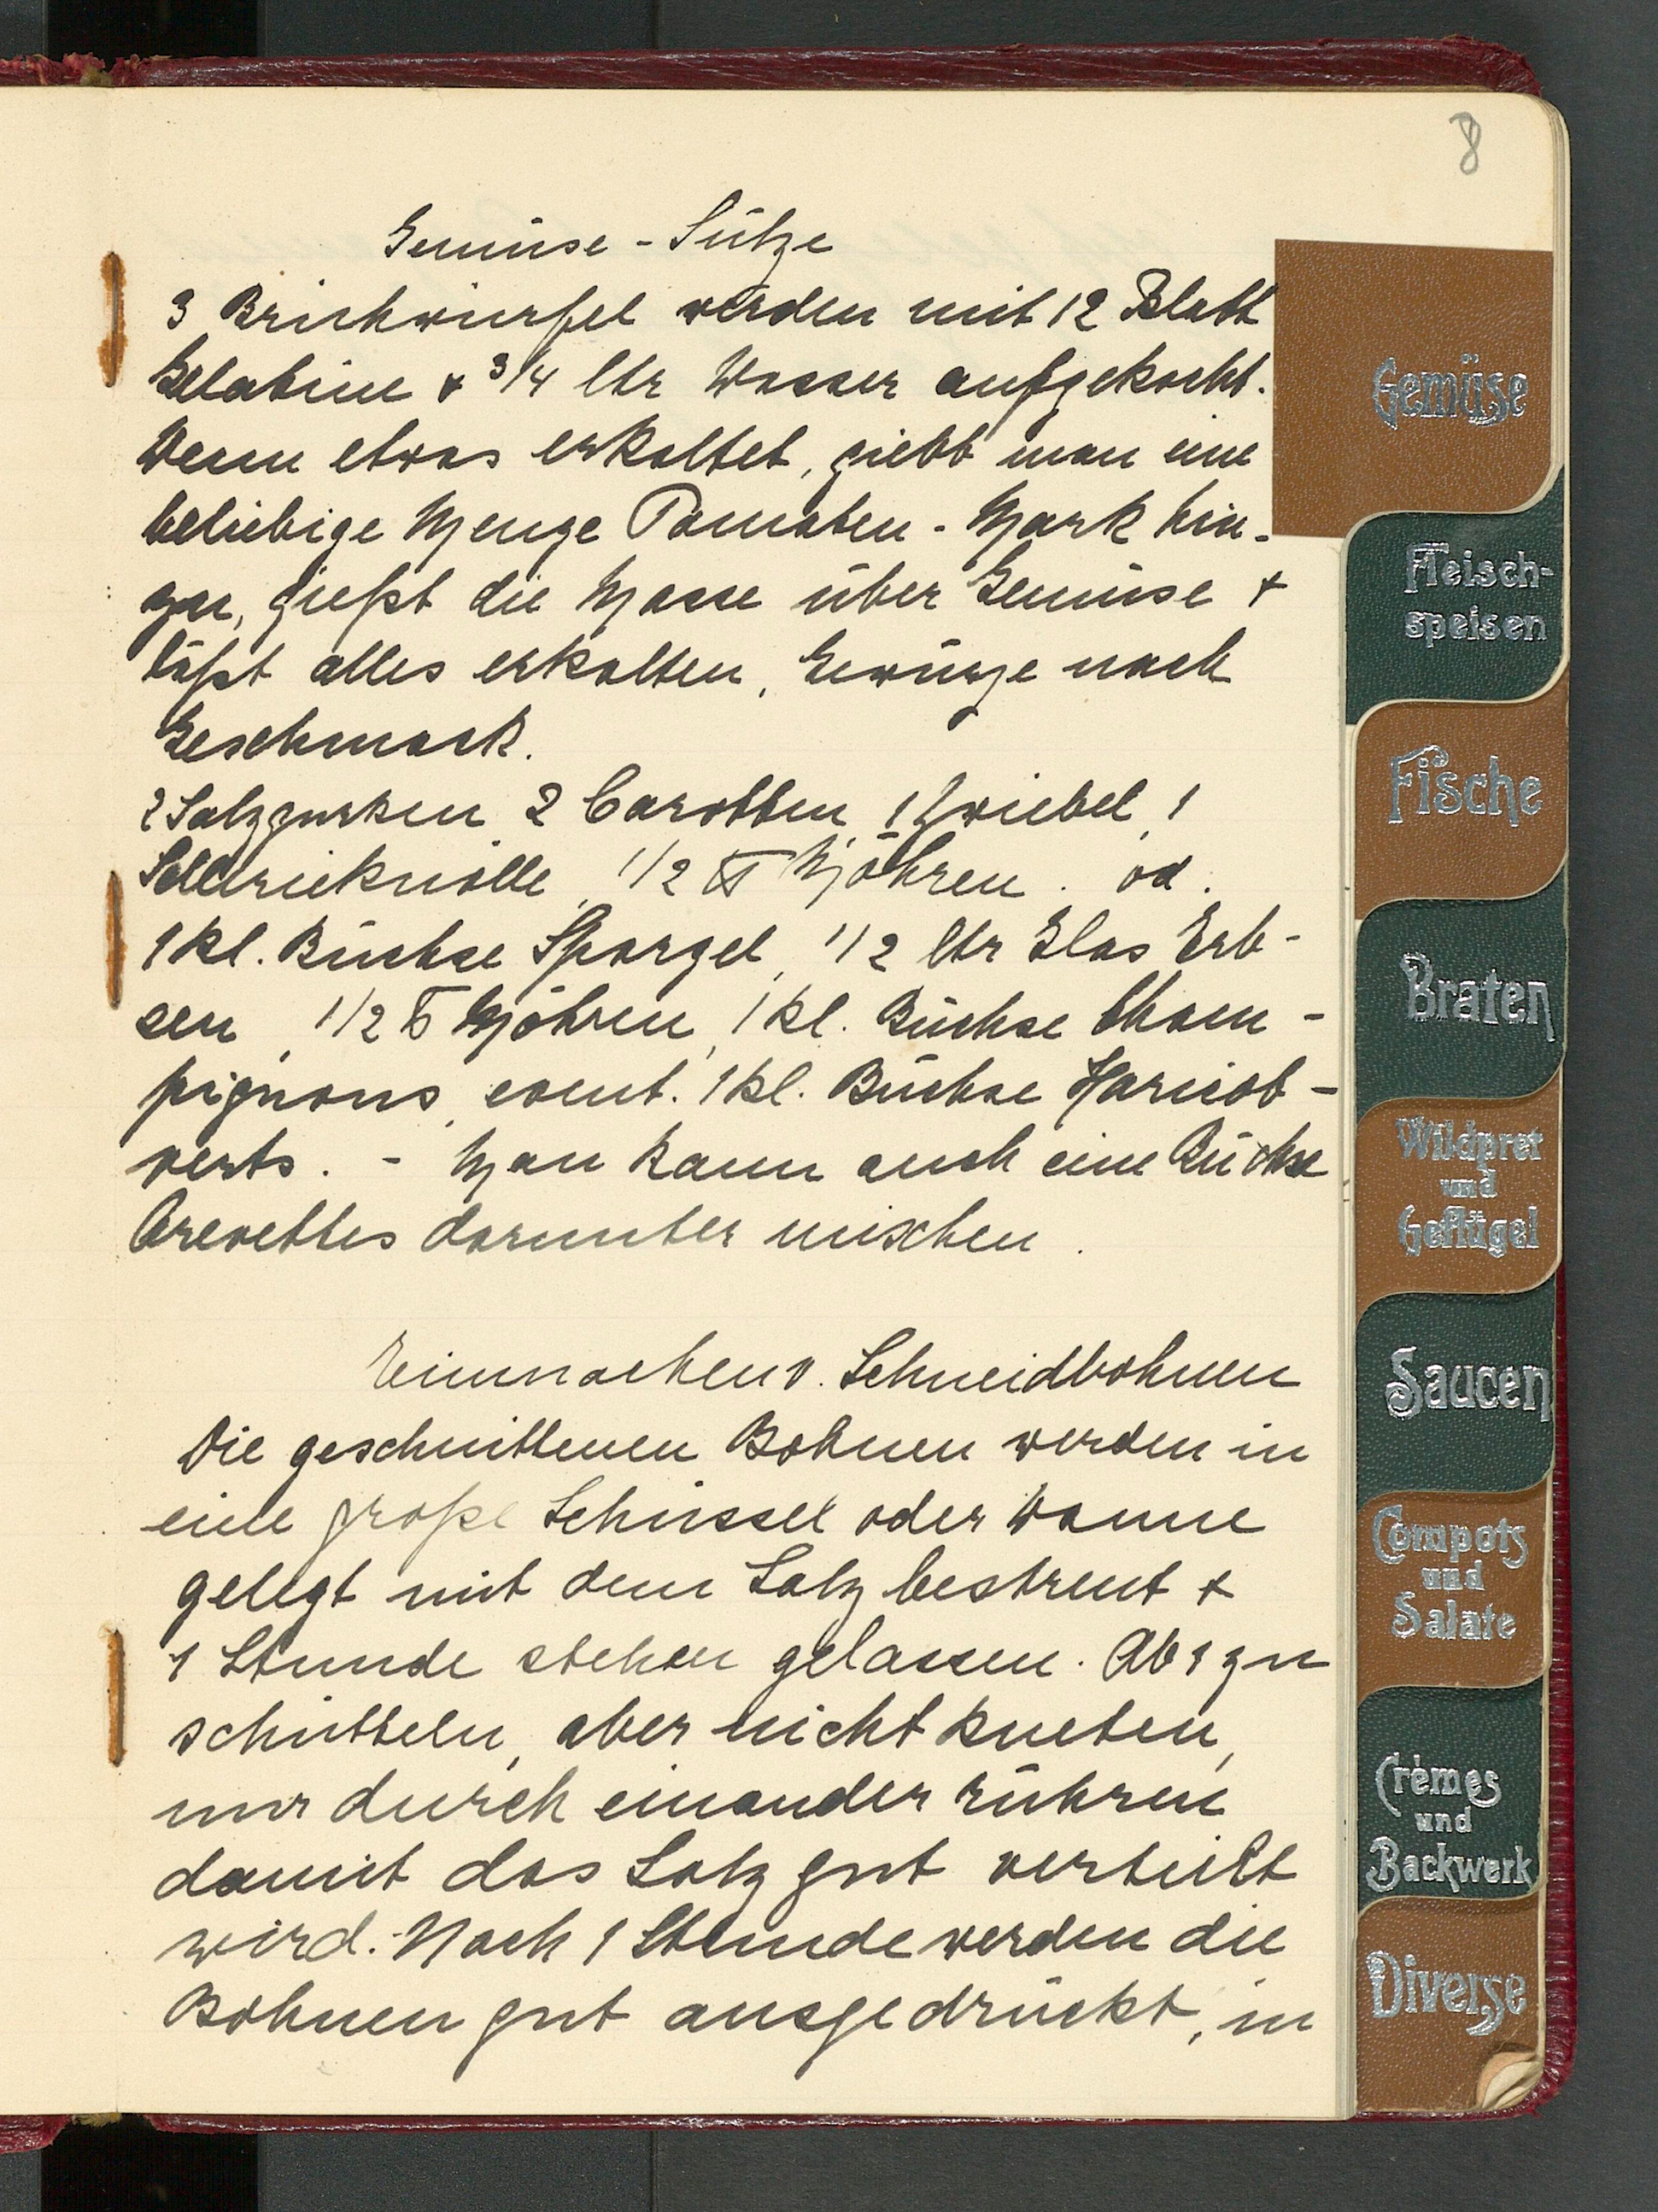 8
Gemüse-Sülze
3 Brühwürfel werden mit 12 Blatt
Gelatine & 3/4 ltr Wasser aufgekocht.
Wenn etwas erkaltet, giebt man eine
beliebige Menge Tomaten-Mark hin-
zu, gießt die Masse über Gemüse &
läßt alles erkalten, Gewürze nach
Geschmack.
2 Salzgurken, 2 Carotten, 1 Zwiebel, 1
Sellerieknolle, 1/2 ℔ Möhren. od.
1 kl. Büchse Spargel, 1/2 ltr Glas Erb-
sen, 1/2 ℔ Möhren, 1 kl. Büchse Cham-
pignons, event. 1 kl. Büchse Haricot-
verts. - Man kann auch eine Büchse
Crevettes darunter mischen.
Einmachen v. Schneidbohnen
Die geschnittenen Bohnen werden in
eine große Schüssel oder Wanne
gelegt mit dem Salz bestreut &
1 Stunde stehen gelassen. Ab & zu
schütteln, aber nicht kneten,
nur durch einander rühren
damit das Salz gut verteilt
wird. Nach 1 Stunde werden die
Bohnen gut ausgedrückt, in
Gemüse
Fleisch-
speisen
Fische
Braten
Wildpret
und
Geflügel
Saucen
Compots
und
Salate
Crèmes
und
Backwerk
Diverse